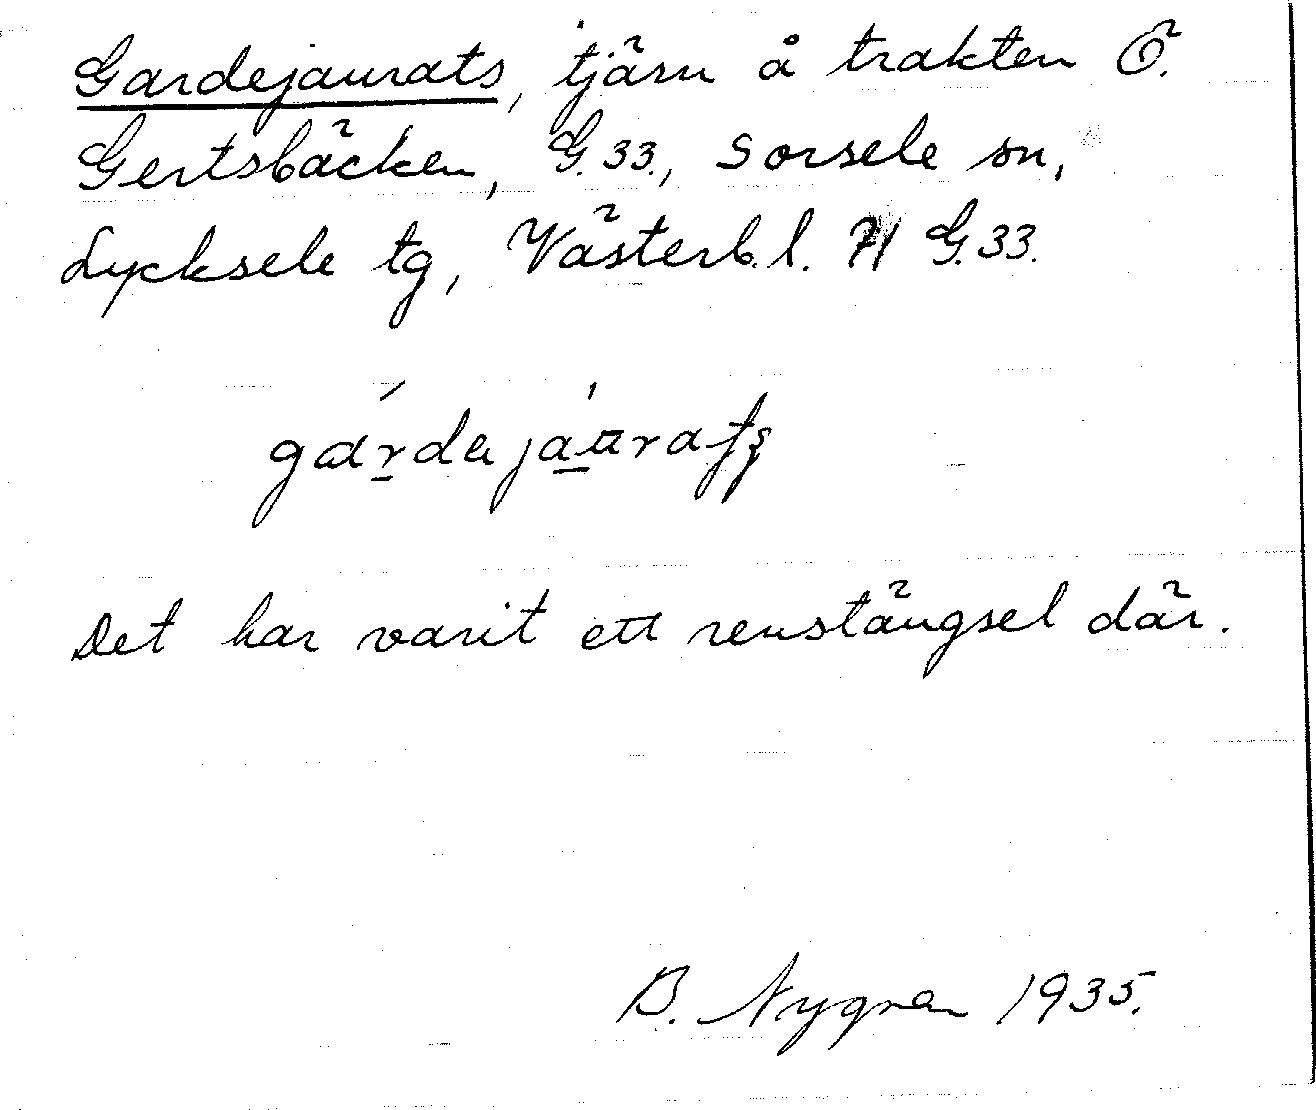 Gardejaurats, tjärn å trakten Ö.
Gertsbäcken, G.33., Sorsele sn,
Lycksele tg, Västerb.l. 71 G.33.
gárdejáurats
Det har varit ett renstängsel där.
B. Nygren 1935.